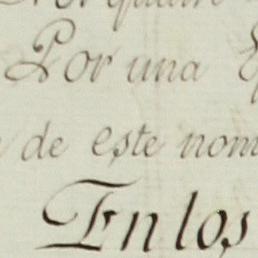 Por una
de este nom
En los